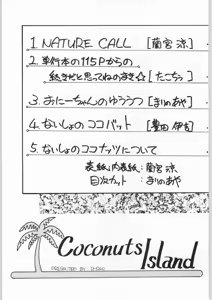 1. NATURE CALL [蘭宮 涼]
2. 単行本の115Pからの
続きだと思ってねのまき☆[たこちゅ]
3. おにーちゃんのゆううつ [まりのあや]
4. ないしょのココバット [豊田 伊吉]
5. ないしょのココナッツについて
表紙,内表紙: 蘭宮 涼
目次カット : まりのあや
Coconuts Island
PRESENTED BY